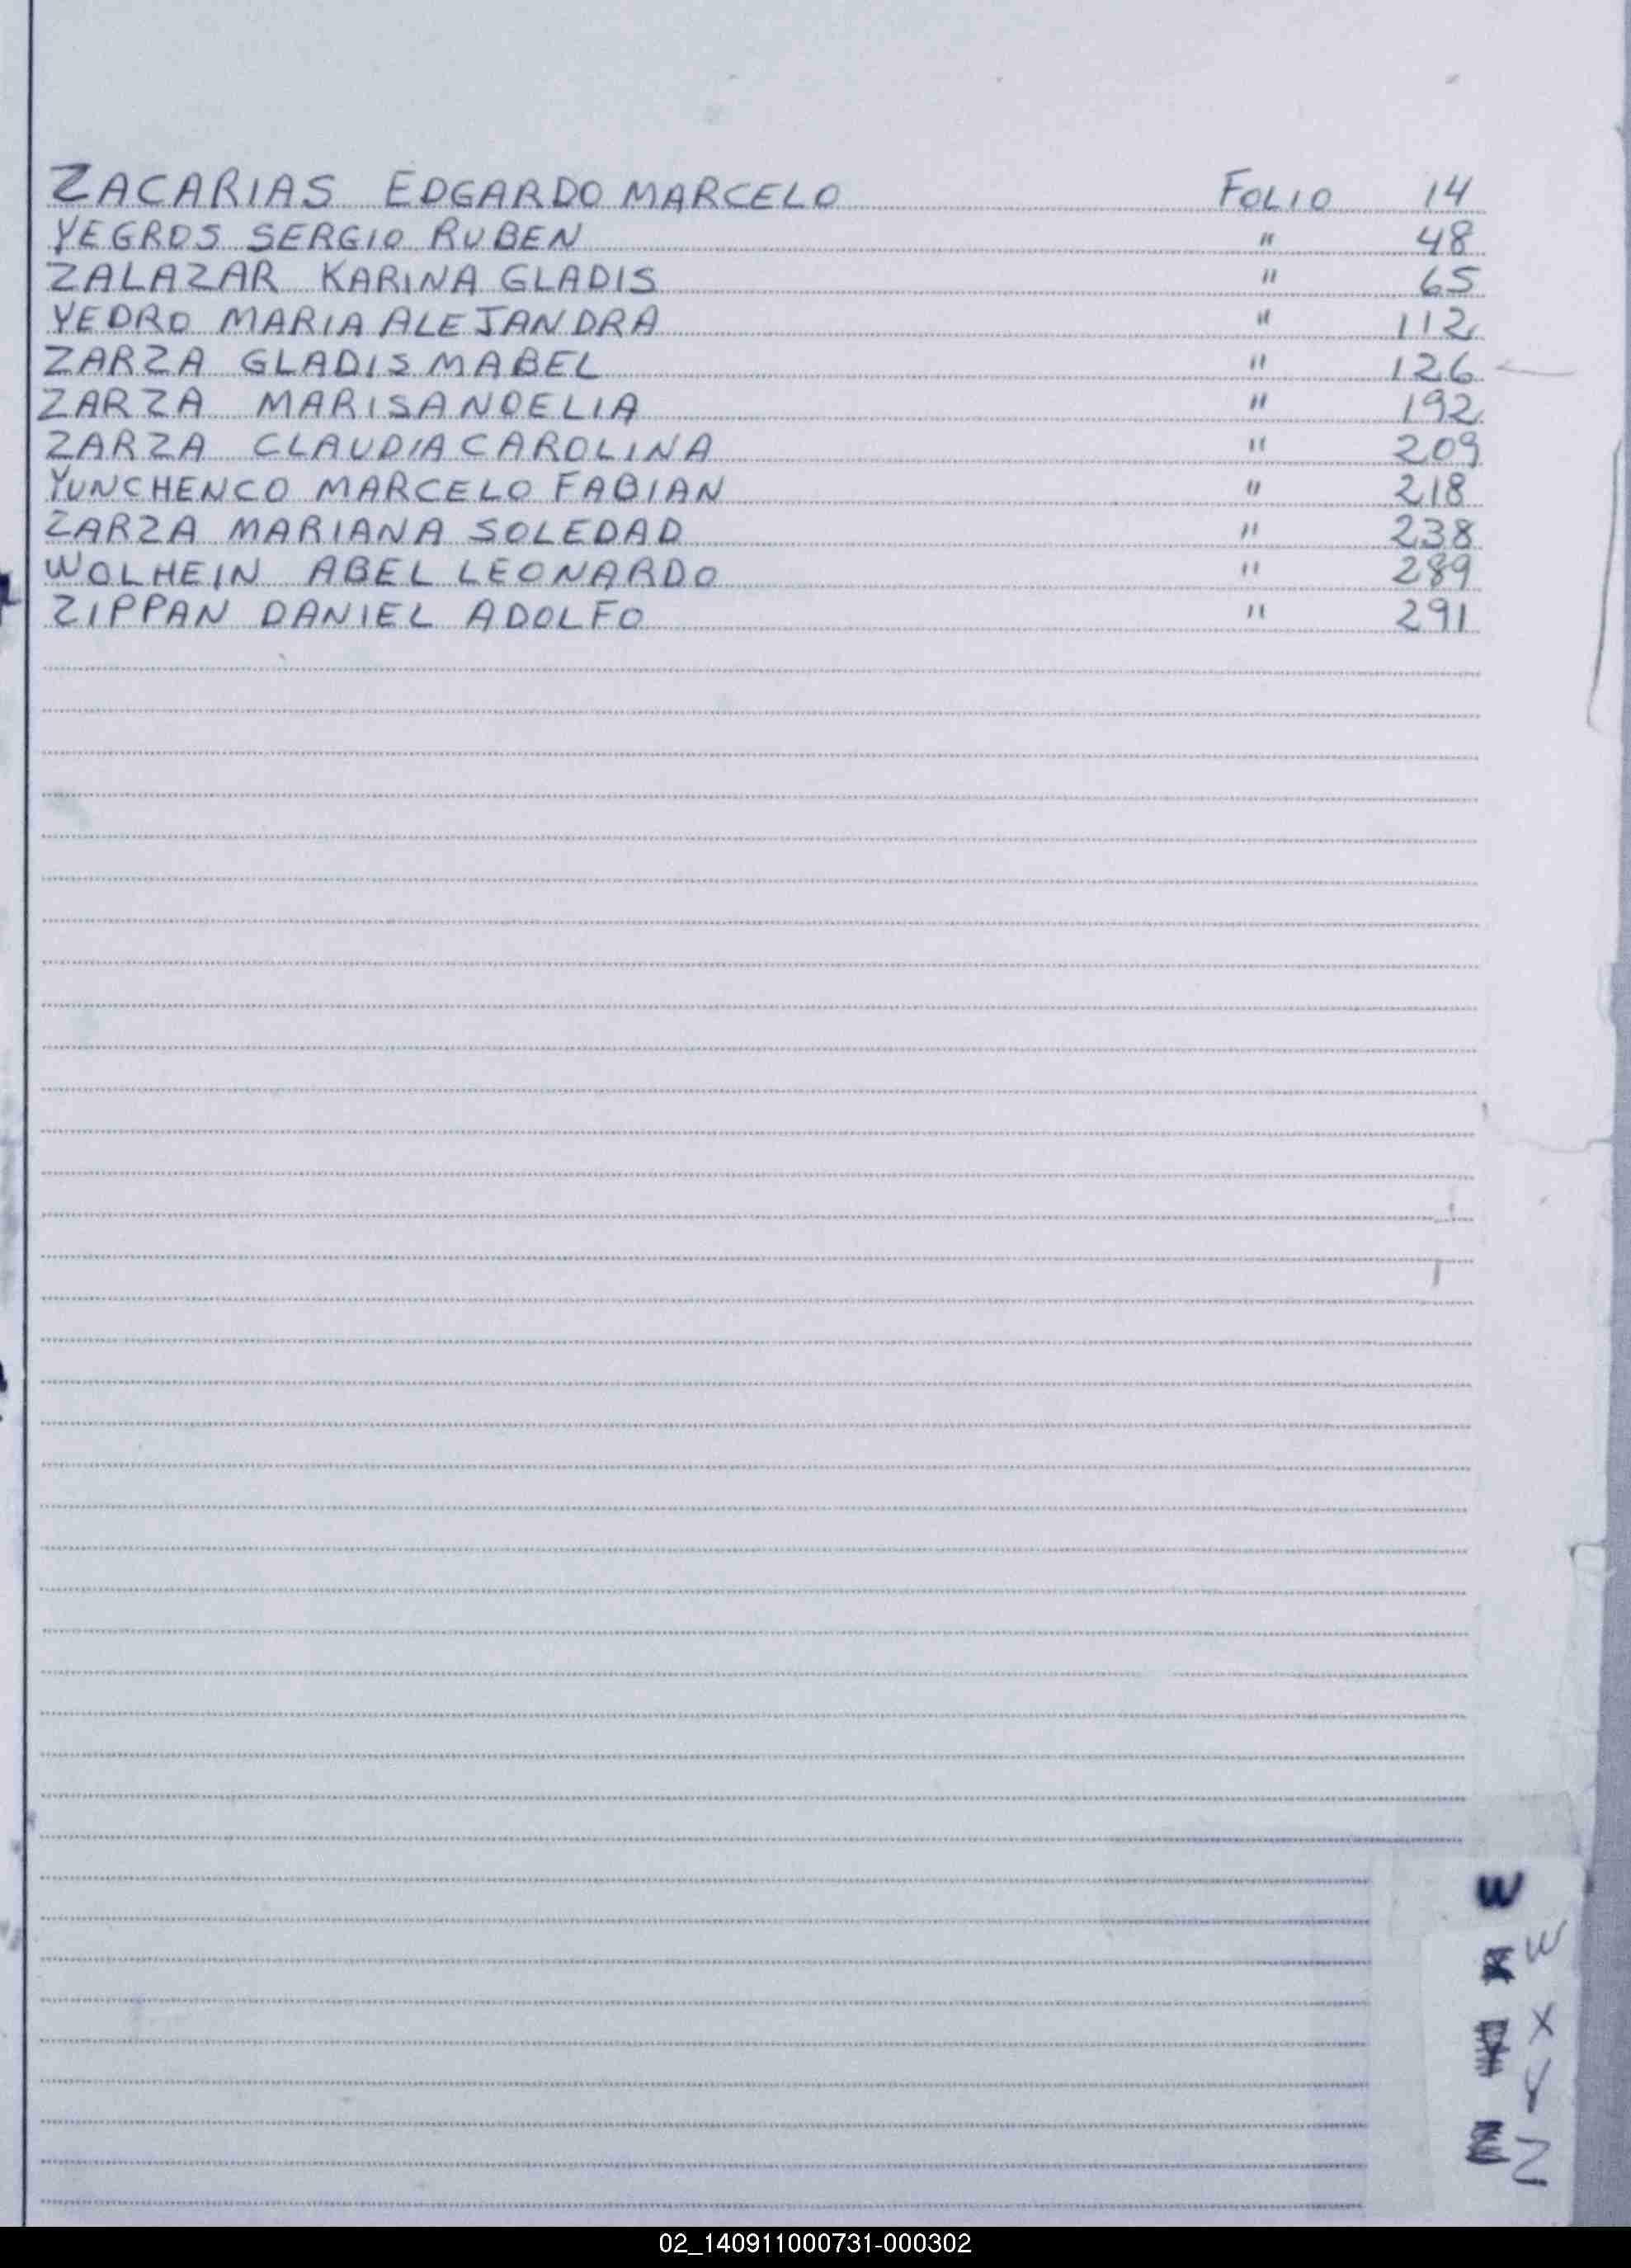 ZACARIAS EDGARDO MARCELO FOLIO 14
YEGROS SERGIO RUBEN " 48
ZALAZAR KARINA GLADIS " 65
YEDRO MARIA ALEJANDRA " 112
ZARZA GLADIS MABEL " 126
ZARZA MARISA NOELIA " 192
ZARZA CLAUDIA CAROLINA " 209
YUNCHENCO MARCELO FABIAN " 218
ZARZA MARIANA SOLEDAD " 238
WOLHEIN ABEL LEONARDO " 289
ZIPPAN DANIEL ADOLFO " 291
W
X W
Y X
Y
Z Z
02_140911000731-000302